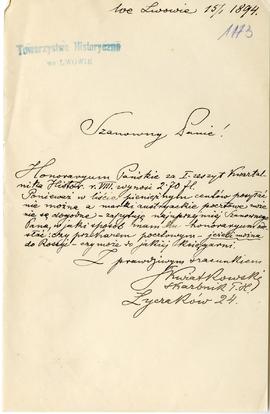 We Lwowie 15/I 1894.
1173
Towarzystwo Historyczne
we LWOWIE
Szanowny Panie!
Honoraryum Pańskie za I. zeszyt Kwartal-
nika Histor. r. VIII. wynosi 2·70 fl.
Ponieważ w liście pieniężnym centów przesyłać
nie można a marki austryackie pocztowe
nie są dogodne – zapytuję najuprzejmiej Szanownego
Pana, w jaki sposób mam honoraryum
słać: czy przekazem pocztowym – jeżeli można
do Rosyi – czy może do jakiej księgarni.
Z prawdziwym szacunkiem
Kwiatkowski
skarbnik T. H.
Łyczaków 24.